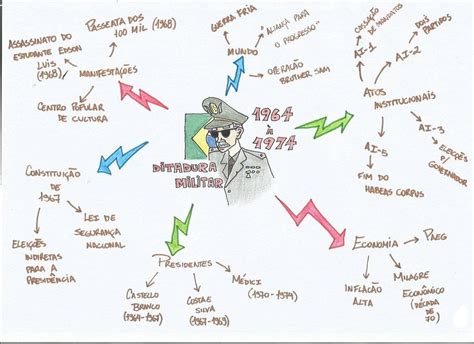 ASSASSINATO DO
ESTUDANTE EDSON
LUIS
(1968)
PASSEATA DOS
100 MIL (1968)
MANIFESTAÇÕES
CENTRO POPULAR
DE CULTURA
GUERRA FRIA
"ALIANÇA PARA
O PROGRESSO"
MUNDO
OPERAÇÃO
BROTHER SAM
CASSAÇÃO
DE MANDATOS
DOIS
PARTIDOS
AI-1
AI-2
ATOS
INSTITUCIONAIS
AI-3
ELEIÇÕES
P/
GOVERNADOR
AI-5
FIM DO
HABEAS CORPUS
1964
à
1974
DITADURA
MILITAR
CONSTITUIÇÃO
DE
1967
LEI DE
SEGURANÇA
NACIONAL
ELEIÇÕES
INDIRETAS
PARA A
PRESIDÊNCIA
PRESIDENTES
CASTELLO
BRANCO
(1964-1967)
COSTA E
SILVA
(1967-1969)
MÉDICI
(1970-1974)
ECONOMIA
PAEG
INFLAÇÃO
ALTA
MILAGRE
ECONÔMICO
(DÉCADA
DE
70)